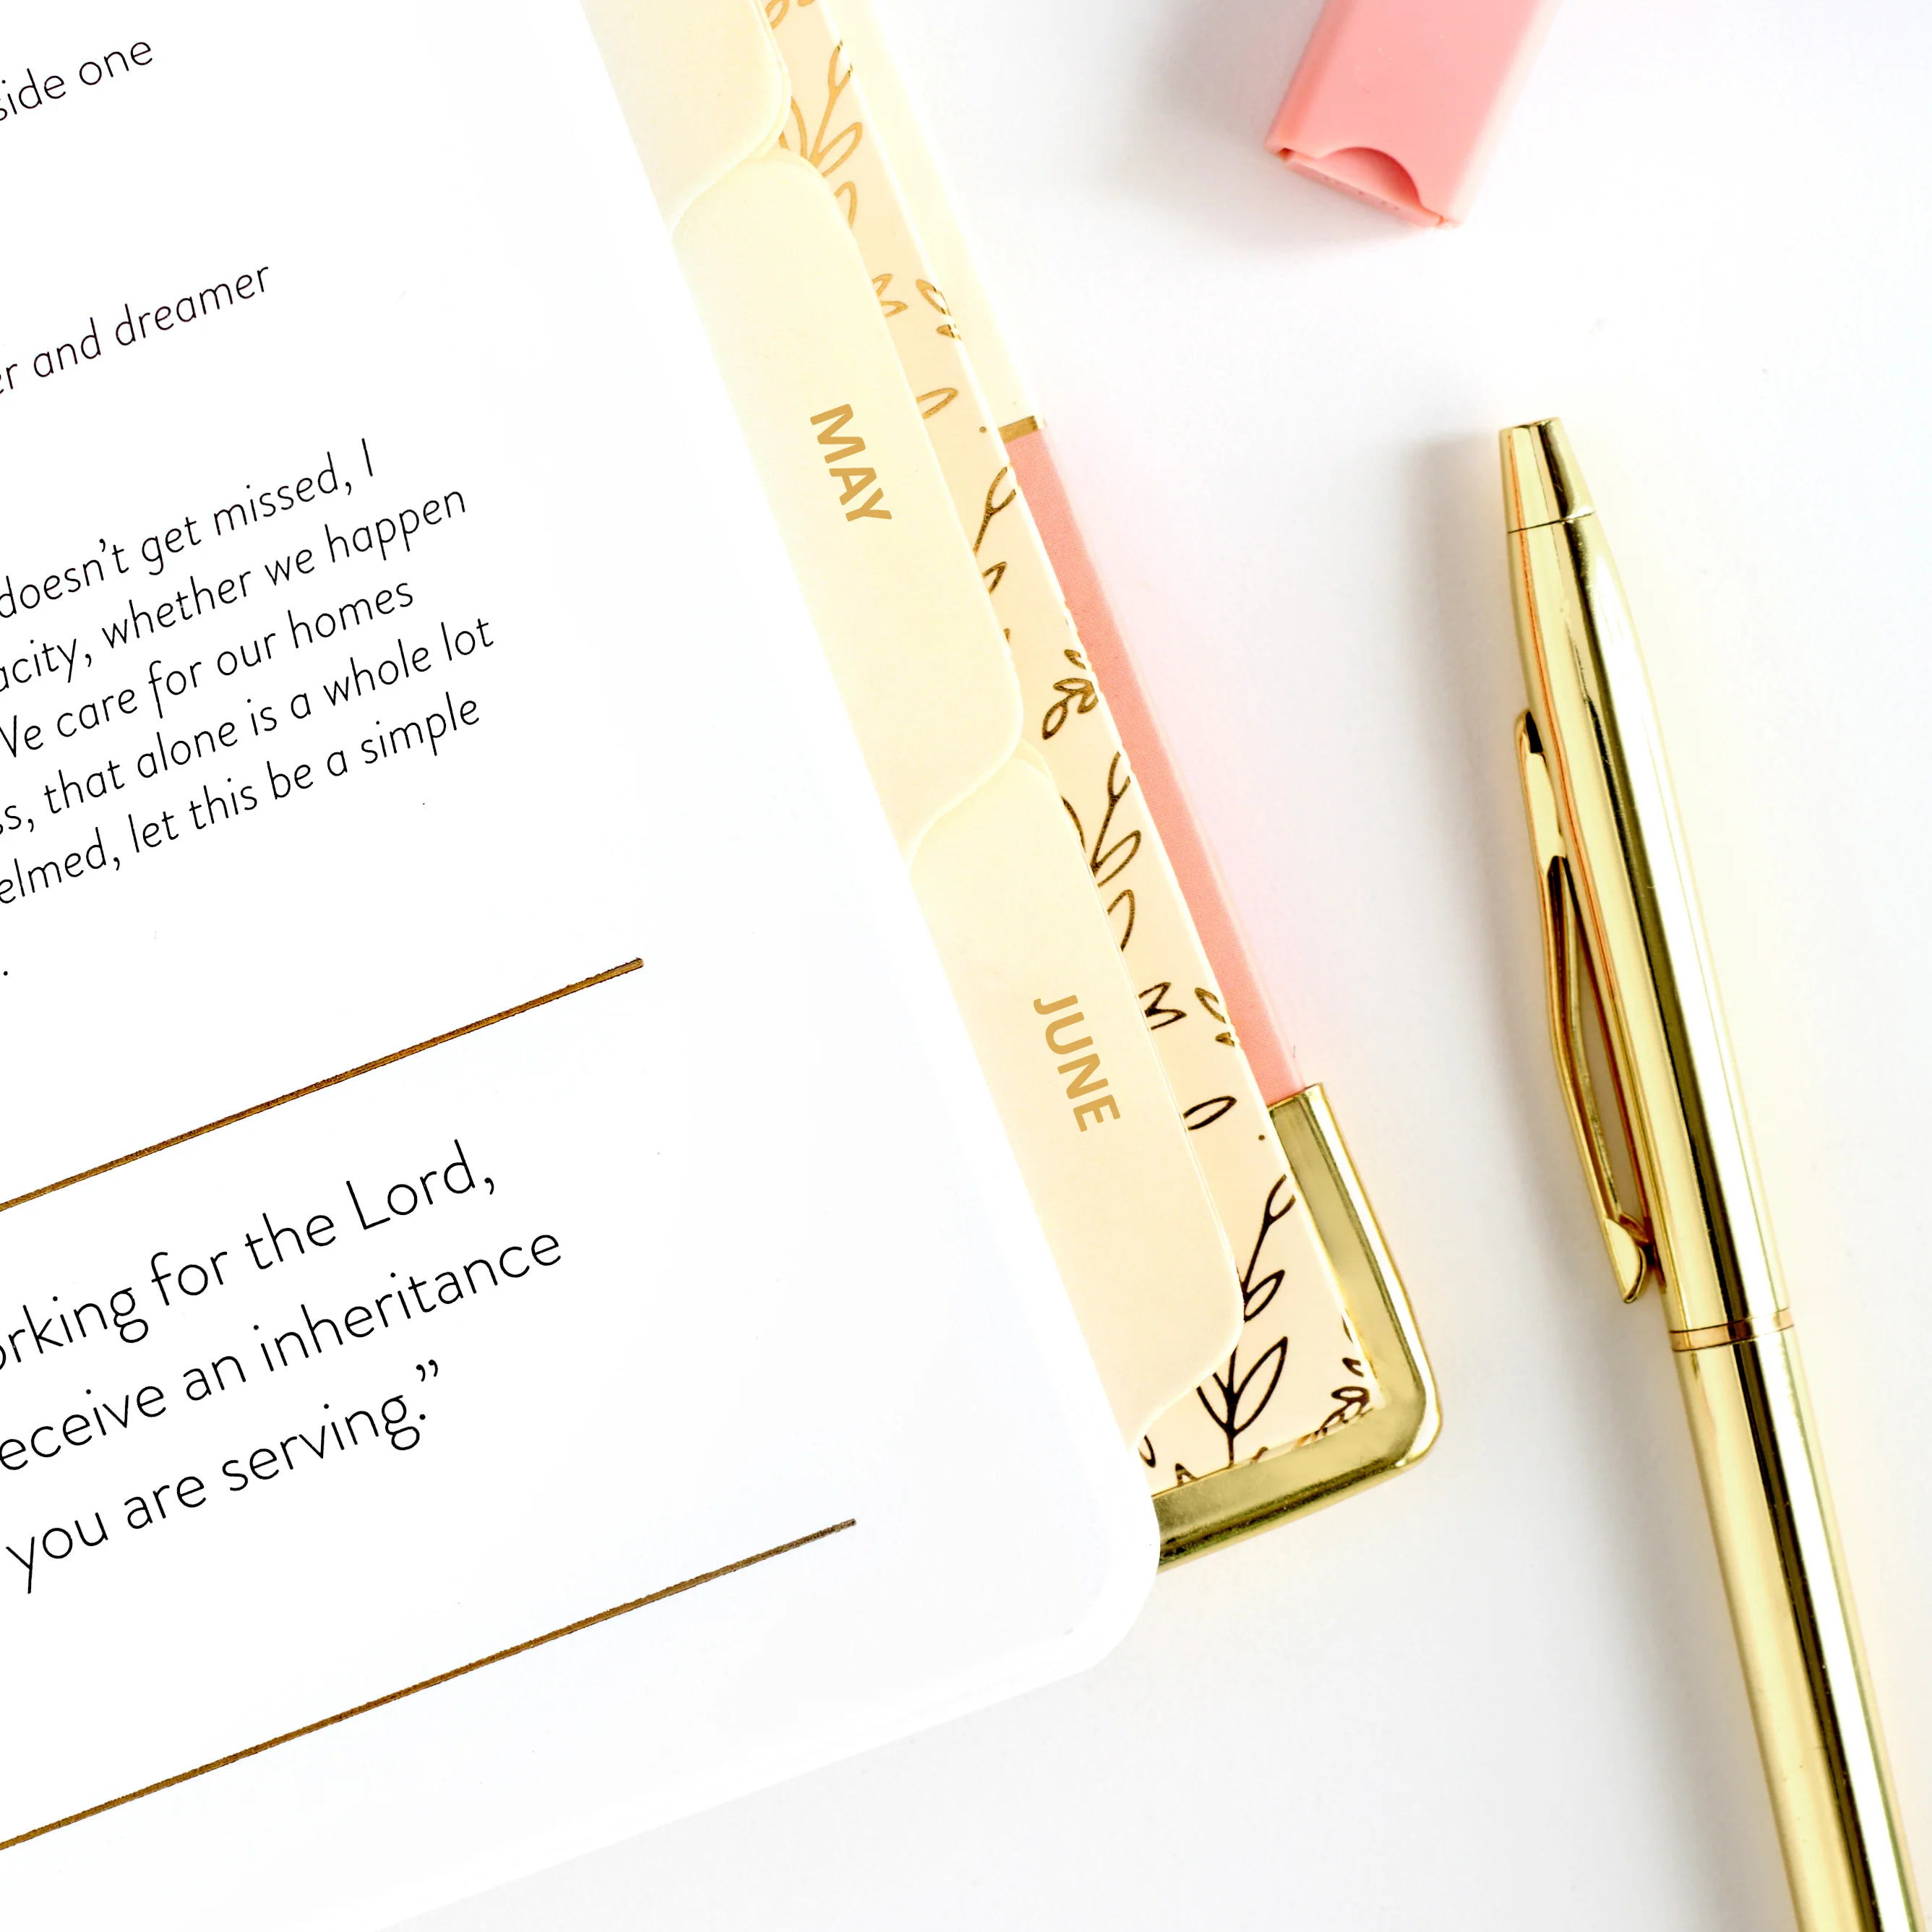 side one
and dreamer
doesn’t get missed, I
whether we happen
We care for our homes
that alone is a whole lot
let this be a simple
for the Lord,
an inheritance
you are serving.”
MAY
JUNE